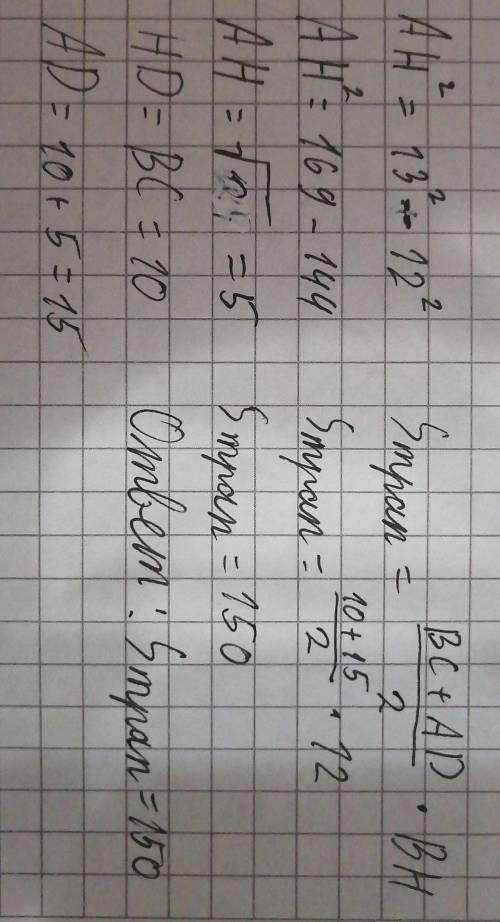 AH² = 13² - 12²
AH² = 169 - 144
AH = √25 = 5
HD = BC = 10
AD = 10 + 5 = 15
Sтрап = (BC + AD)/2 · BH
Sтрап = (10 + 15)/2 · 12
Sтрап = 150
Ответ: Sтрап = 150